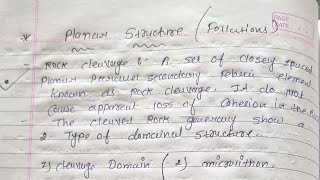 PAGE:
DATE:
Planar Structure (Foliations)
Rock cleavage :- A set of closely spaced
Planar Parallel secondary Fabric element
known as Rock cleavage. It do not
cause apparent loss of cohesion in the
The cleved Rock generally show a
2 Type of domainal structure.
1) cleavage Domain 2) microlithon.